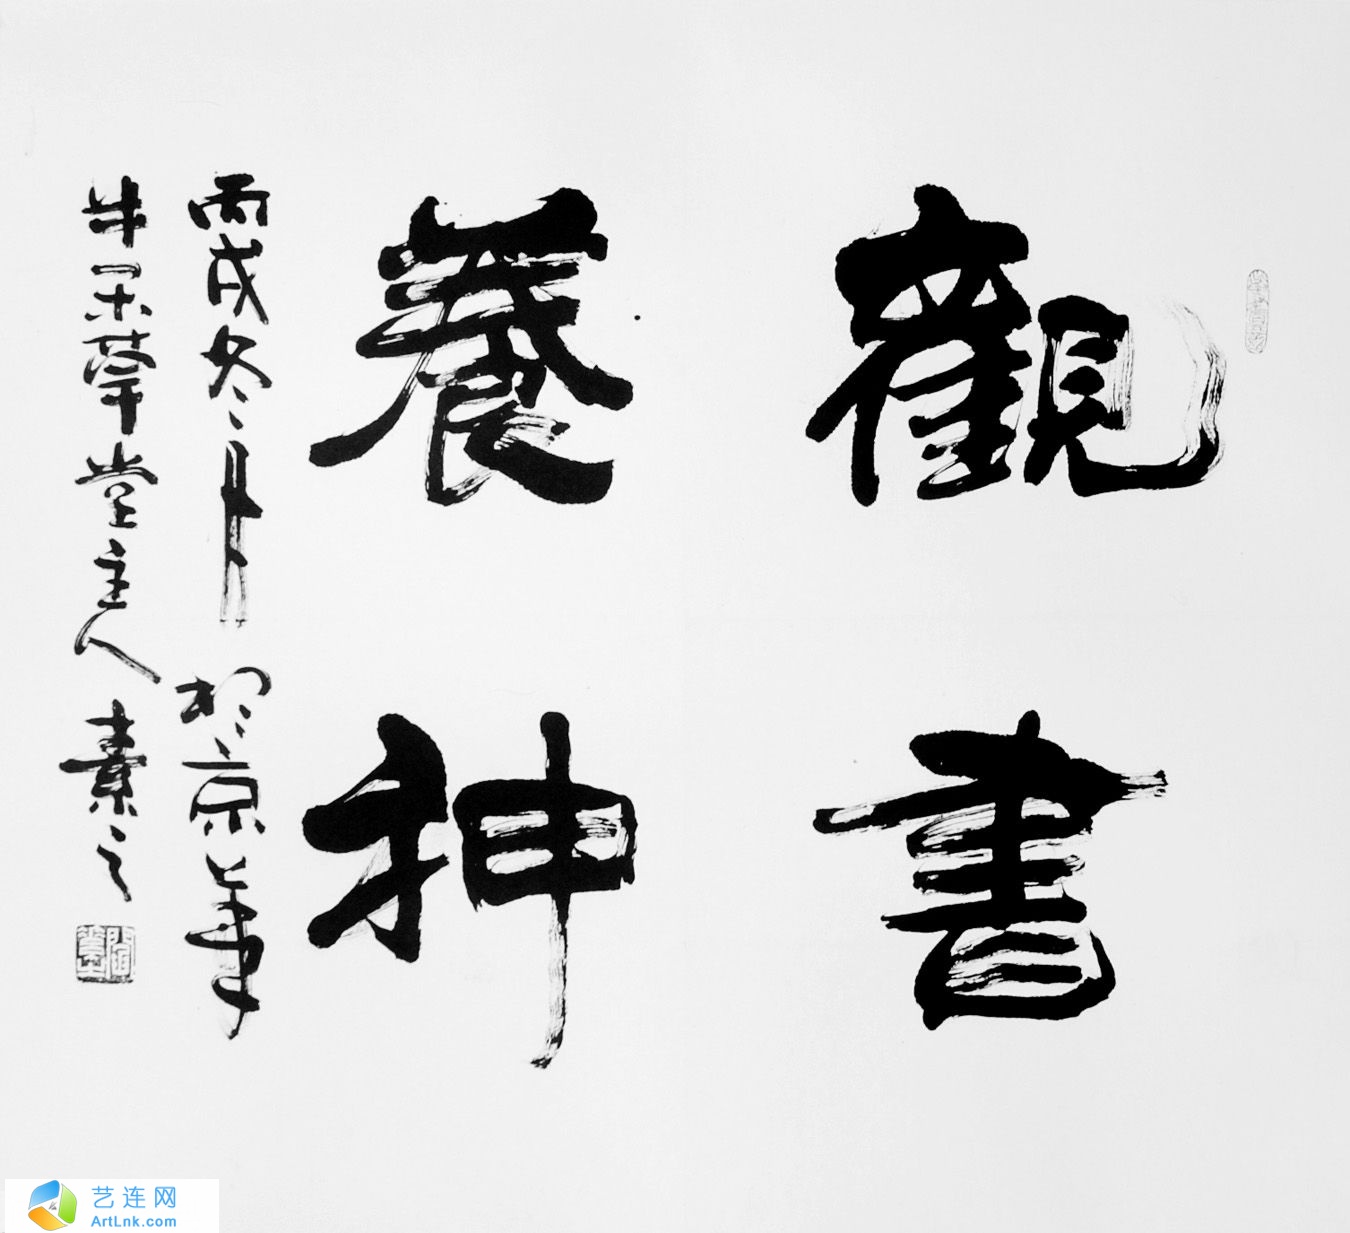 觀書
養神
丙戌冬月於京華
堂主人素之
艺连网
ArtLnk.com